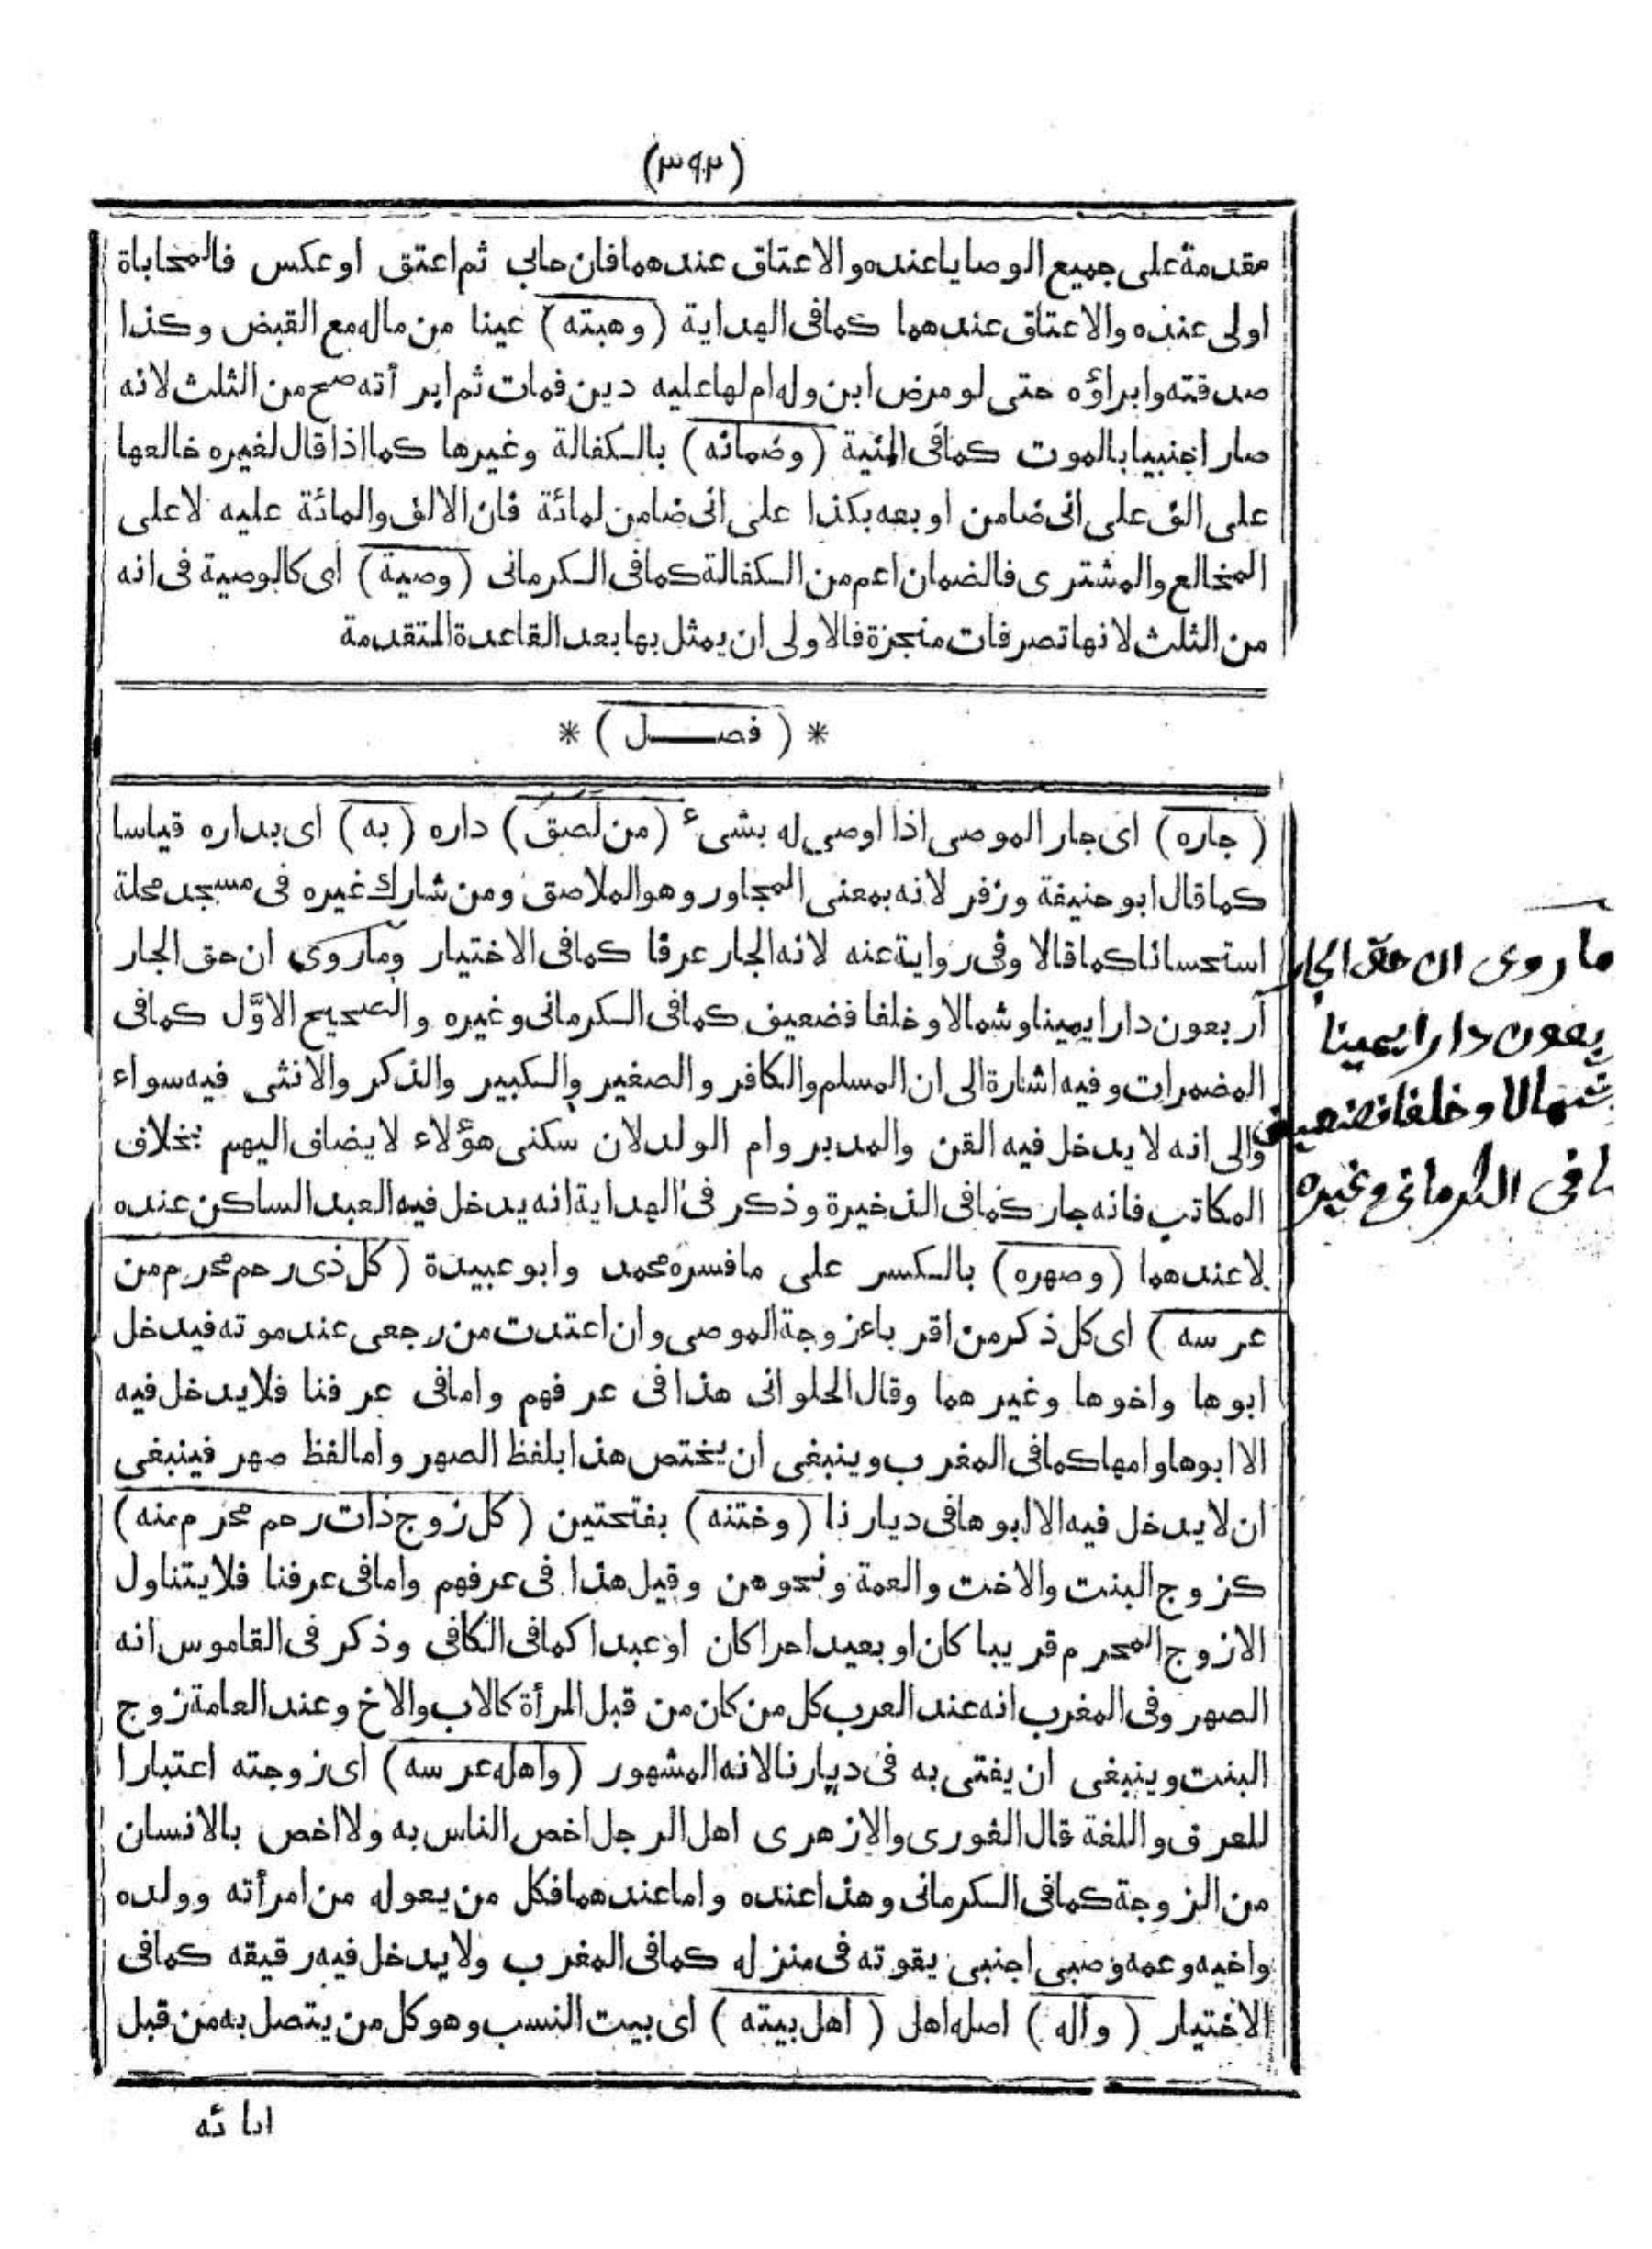 (٣٩٢)
مقدمة على جميع الوصايا عنده والاعتاق عندهما فان حابى ثم اعتق او عكس فالمحاباة
اولى عنده والاعتاق عندهما كما فى الهداية (وهبته) عينا من ماله مع القبض وكذا
صدقته وابراؤه حتى لو مرض ابن وله ام لها عليه دين فمات ثم ابرأته صح من الثلث لانه
صار اجنبيا بالموت كما فى المنية (وضمانه) بالكفالة وغيرها كما اذا قال لغيره خالعها
على الف على انى ضامن او بعه بكذا على انى ضامن لمائة فان الالف والمائة عليه لا على
المخالع والمشترى فالضمان اعم من الكفالة كما فى الكرمانى (وصية) اى كالوصية فى انه
من الثلث لانها تصرفات منجزة فالاولى ان يمثل بها بعد القاعدة المتقدمة
* (فصــل) *
(جاره) اى جار الموصى اذا اوصى له بشىء (من لصق) داره (به) اى بداره قياسا
كما قال ابو حنيفة وزفر لانه بمعنى المجاور وهو الملاصق ومن شارك غيره فى مسجد محلة
استحسانا كما قالا وفى رواية عنه لانه الجار عرفا كما فى الاختيار وما روى ان حق الجار
اربعون دارا يمينا وشمالا وخلفا فضعيف كما فى الكرمانى وغيره والصحيح الاوّل كما فى
المضمرات وفيه اشارة الى ان المسلم والكافر والصغير والكبير والذكر والانثى فيه سواء
والى انه لا يدخل فيه القن والمدبر وام الولد لان سكنى هؤلاء لا يضاف اليهم بخلاف
المكاتب فانه جار كما فى الذخيرة وذكر فى الهداية انه يدخل فيه العبد الساكن عنده
لا عندهما (وصهره) بالكسر على ما فسره محمد وابو عبيدة (كل ذى رحم محرم من
عرسه) اى كل ذكر من اقرباء زوجة الموصى وان اعتدت من رجعى عند موته فيدخل
ابوها واخوها وغيرهما وقال الحلوانى هذا فى عرفهم واما فى عرفنا فلا يدخل فيه
الا ابوها وامها كما فى المغرب وينبغى ان يختص هذا بلفظ الصهر واما لفظ صهر فينبغى
ان لا يدخل فيه الا ابوها فى ديارنا (وختنه) بفتحتين (كل زوج ذات رحم محرم منه)
كزوج البنت والاخت والعمة ونحوهن وقيل هذا فى عرفهم واما فى عرفنا فلا يتناول
الا زوج المحرم قريبا كان او بعيدا حرا كان او عبدا كما فى الكافى وذكر فى القاموس انه
الصهر وفى المغرب انه عند العرب كل من كان من قبل المرأة كالاب والاخ وعند العامة زوج
البنت وينبغى ان يفتى به فى ديارنا لانه المشهور (واهل عرسه) اى زوجته اعتبارا
للعرف واللغة قال الغورى والازهرى اهل الرجل اخص الناس به ولا اخص بالانسان
من الزوجة كما فى الكرمانى وهذا عنده واما عندهما فكل من يعوله من امرأته وولده
واخيه وعمه وصبى اجنبى يقوته فى منزله كما فى المغرب ولا يدخل فيه رقيقه كما فى
الاختيار (وآله) اصله اهل (اهل بيته) اى بيت النسب وهو كل من يتصل به من قبل
ابائه
ما روى ان حق الجار
بعون دارا يمينا
شمالا وخلفا فضعيف
ما فى الكرمانى وغيره